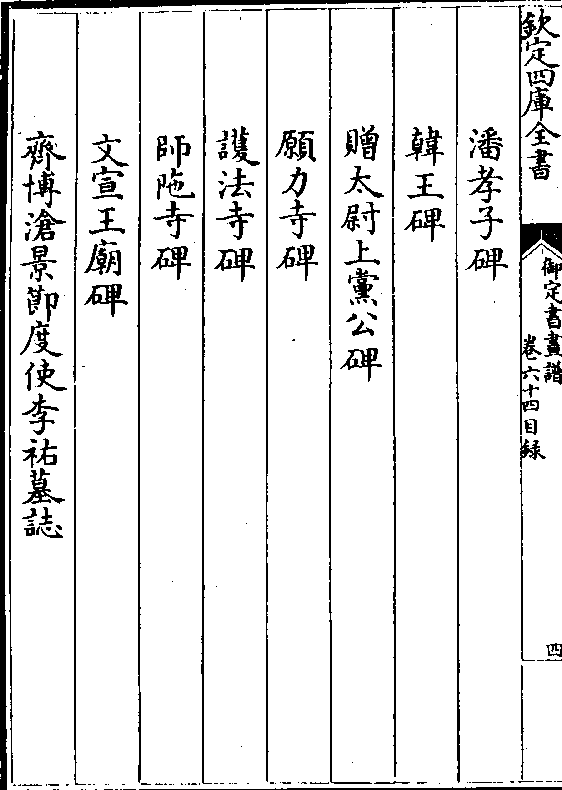 欽定四庫全書
御定書畫譜
卷六十四目録
四
潘孝子碑
韓王碑
贈太尉上黨公碑
願力寺碑
護法寺碑
師陁寺碑
文宣王廟碑
齊博滄景節度使李祐墓誌